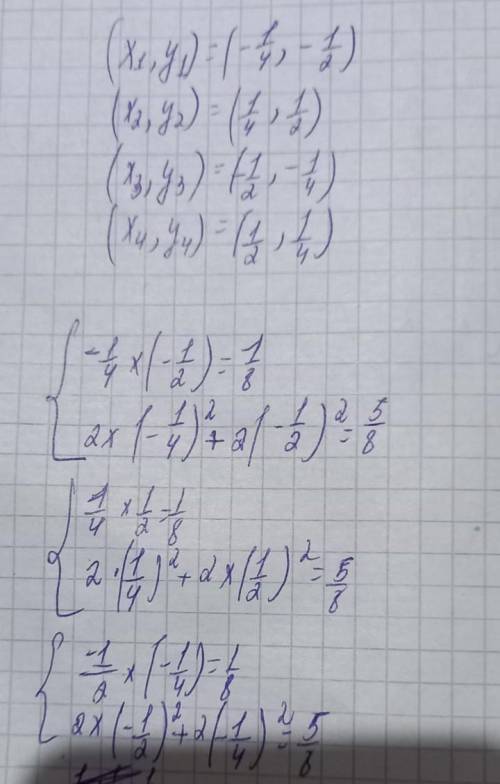 (x₁, y₁) = (-1/4, -1/2)
(x₂, y₂) = (1/4, 1/2)
(x₃, y₃) = (-1/2, -1/4)
(x₄, y₄) = (1/2, 1/4)
{ -1/4 × (-1/2) = 1/8
2 × (-1/4)² + 2(-1/2)² = 5/8
{ 1/4 × 1/2 = 1/8
2 · (1/4)² + 2 × (1/2)² = 5/8
{ -1/2 × (-1/4) = 1/8
2 × (-1/2)² + 2(-1/4)² = 5/8